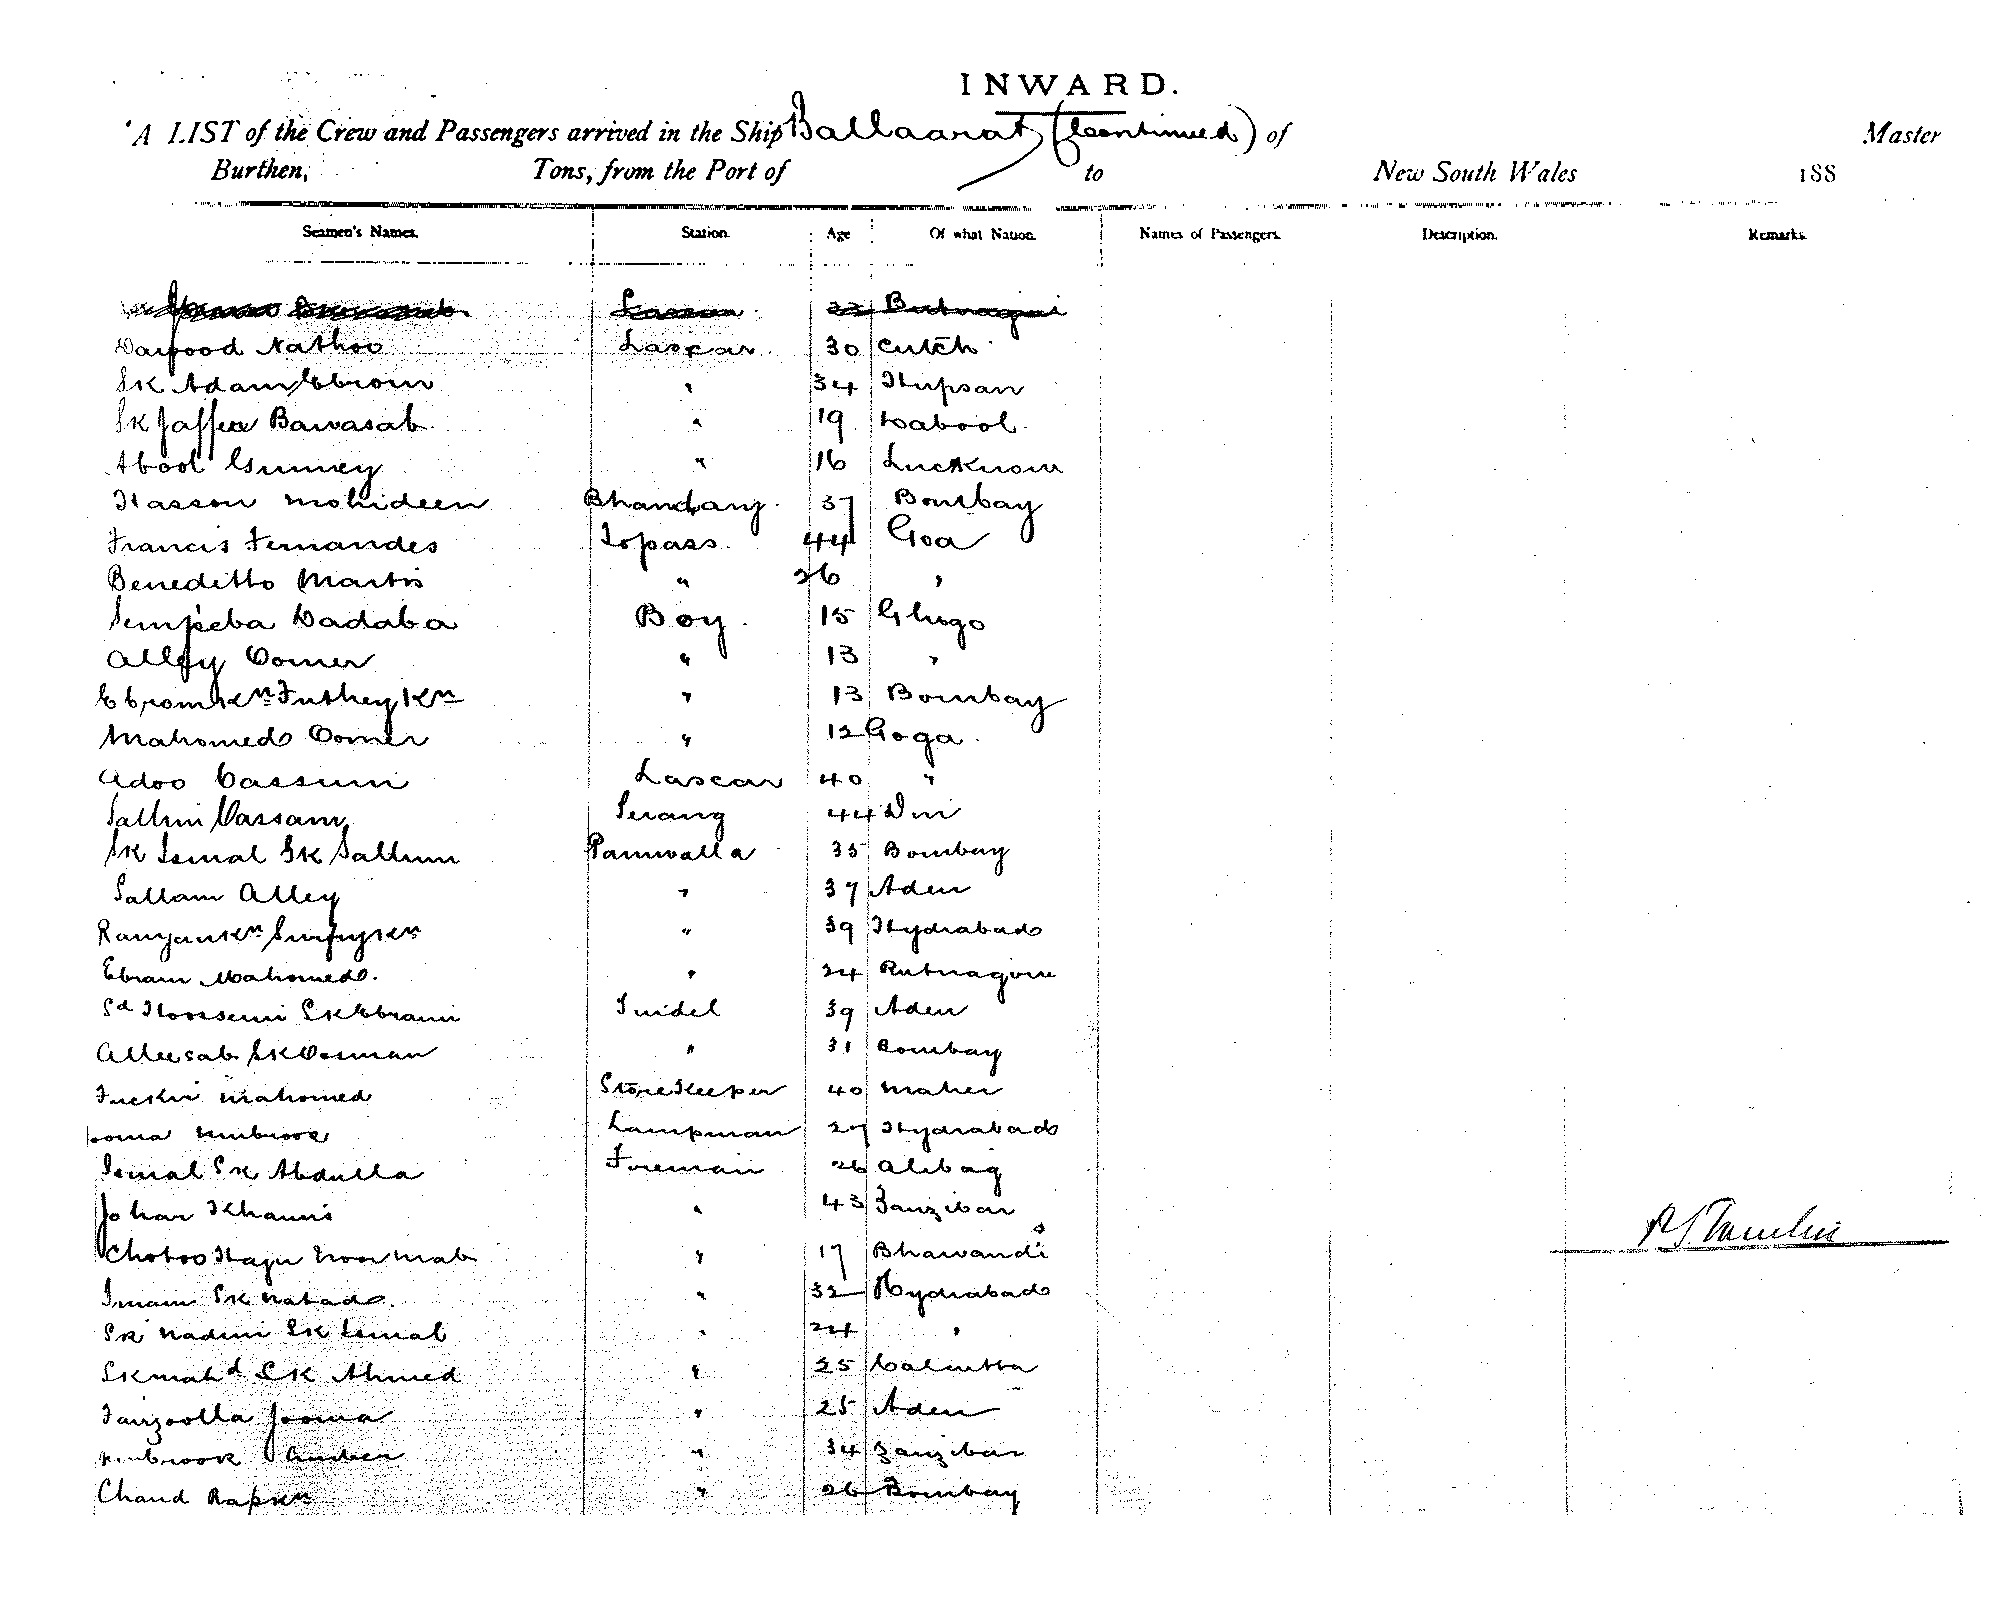 INWARD.
A LIST of the Crew and Passengers arrived in the Ship Ballaarat (Continued) of Master
Burthen, Tons, from the Port of to New South Wales 188
Seamen's Names. Station. Age Of what Nation. Names of Passengers. Description. Remarks.
Lascar 22
Dawood Nathoo Lascar 30 Cutch
SK Adam Ebrom " 34
SK Jaffer Bawasab " 19 Kabool
Abool Gunney " 16 Lucknow
Hasson Mohideen Bhandary 37 Bombay
Francis Fernandes Topass 44 Goa
Beneditto Martis " 26 "
Dadaba Boy 15 Ghogo
Alley Oomer " 13 "
Ebrom Kn Futhey Kn " 13 Bombay
Mahomed Oomer " 12 Goga
Adoo Cassum Lascar 40 "
Sallim Cassam Serang 44 Diu
SK Ismal SK Sallum Paniwalla 35 Bombay
Sallam Alley " 37 Aden
" 39 Hydrabad
Ebram Mahomed. " 24 Rutnagore
Sd Hoossein SK Ebram Tindel 39 Aden
Alleesab SK Oosman " 31 Bombay
Fuckir Mahomed StoreKeeper 40 Maher
Jooma Mubrook Lampman 27 Hydrabad
Ismal SK Abdulla Fireman 26 Alibag
Johar Khamis " 43 Zanzibar
Chotoo Haju Noor Mah " 17 Bhawandi
Imam SK " 32 Hydrabad
SK SK Ismal " 24 "
SK Mahd SK Ahmed " 25 Calcutta
Fauzoolla Jooma " 25 Aden
Mubrook Amber " 34 Zanzibar
Chand Rap Kn " 26 Bombay